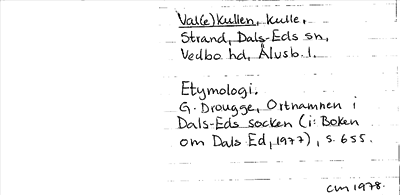 Val(e)kullen, kulle,
Strand, Dals-Eds sn,
Vedbo hd, Älvsb. l.
Etymologi.
G. Drougge, Ortnamnen i
Dals-Eds socken (i: Boken
om Dals Ed, 1977), s. 655.
CM 1978.